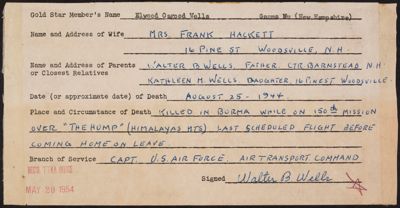 Gold Star Member's Name Elwood Osgood Wells Gamma Mu (New Hampshire)
Name and Address of Wife MRS. FRANK HACKETT
16 PINE ST WOODSVILLE, N.H.
Name and Address of Parents WALTER B WELLS, FATHER, CTR BARNSTEAD, N.H
or Closest Relatives KATHLEEN M. WELLS, DAUGHTER, 16 PINE ST WOODSVILLE
Date (or approximate date) of Death AUGUST 25 - 1944
Place and Circumstance of Death KILLED IN BURMA WHILE ON 150th MISSION
OVER "THE HUMP" (HIMALAYAS MTS) LAST SCHEDULED FLIGHT BEFORE
COMING HOME ON LEAVE.
Branch of Service CAPT. U.S. AIR FORCE, AIR TRANSPORT COMMAND
Signed Walter B. Wells
MAY 20 1954